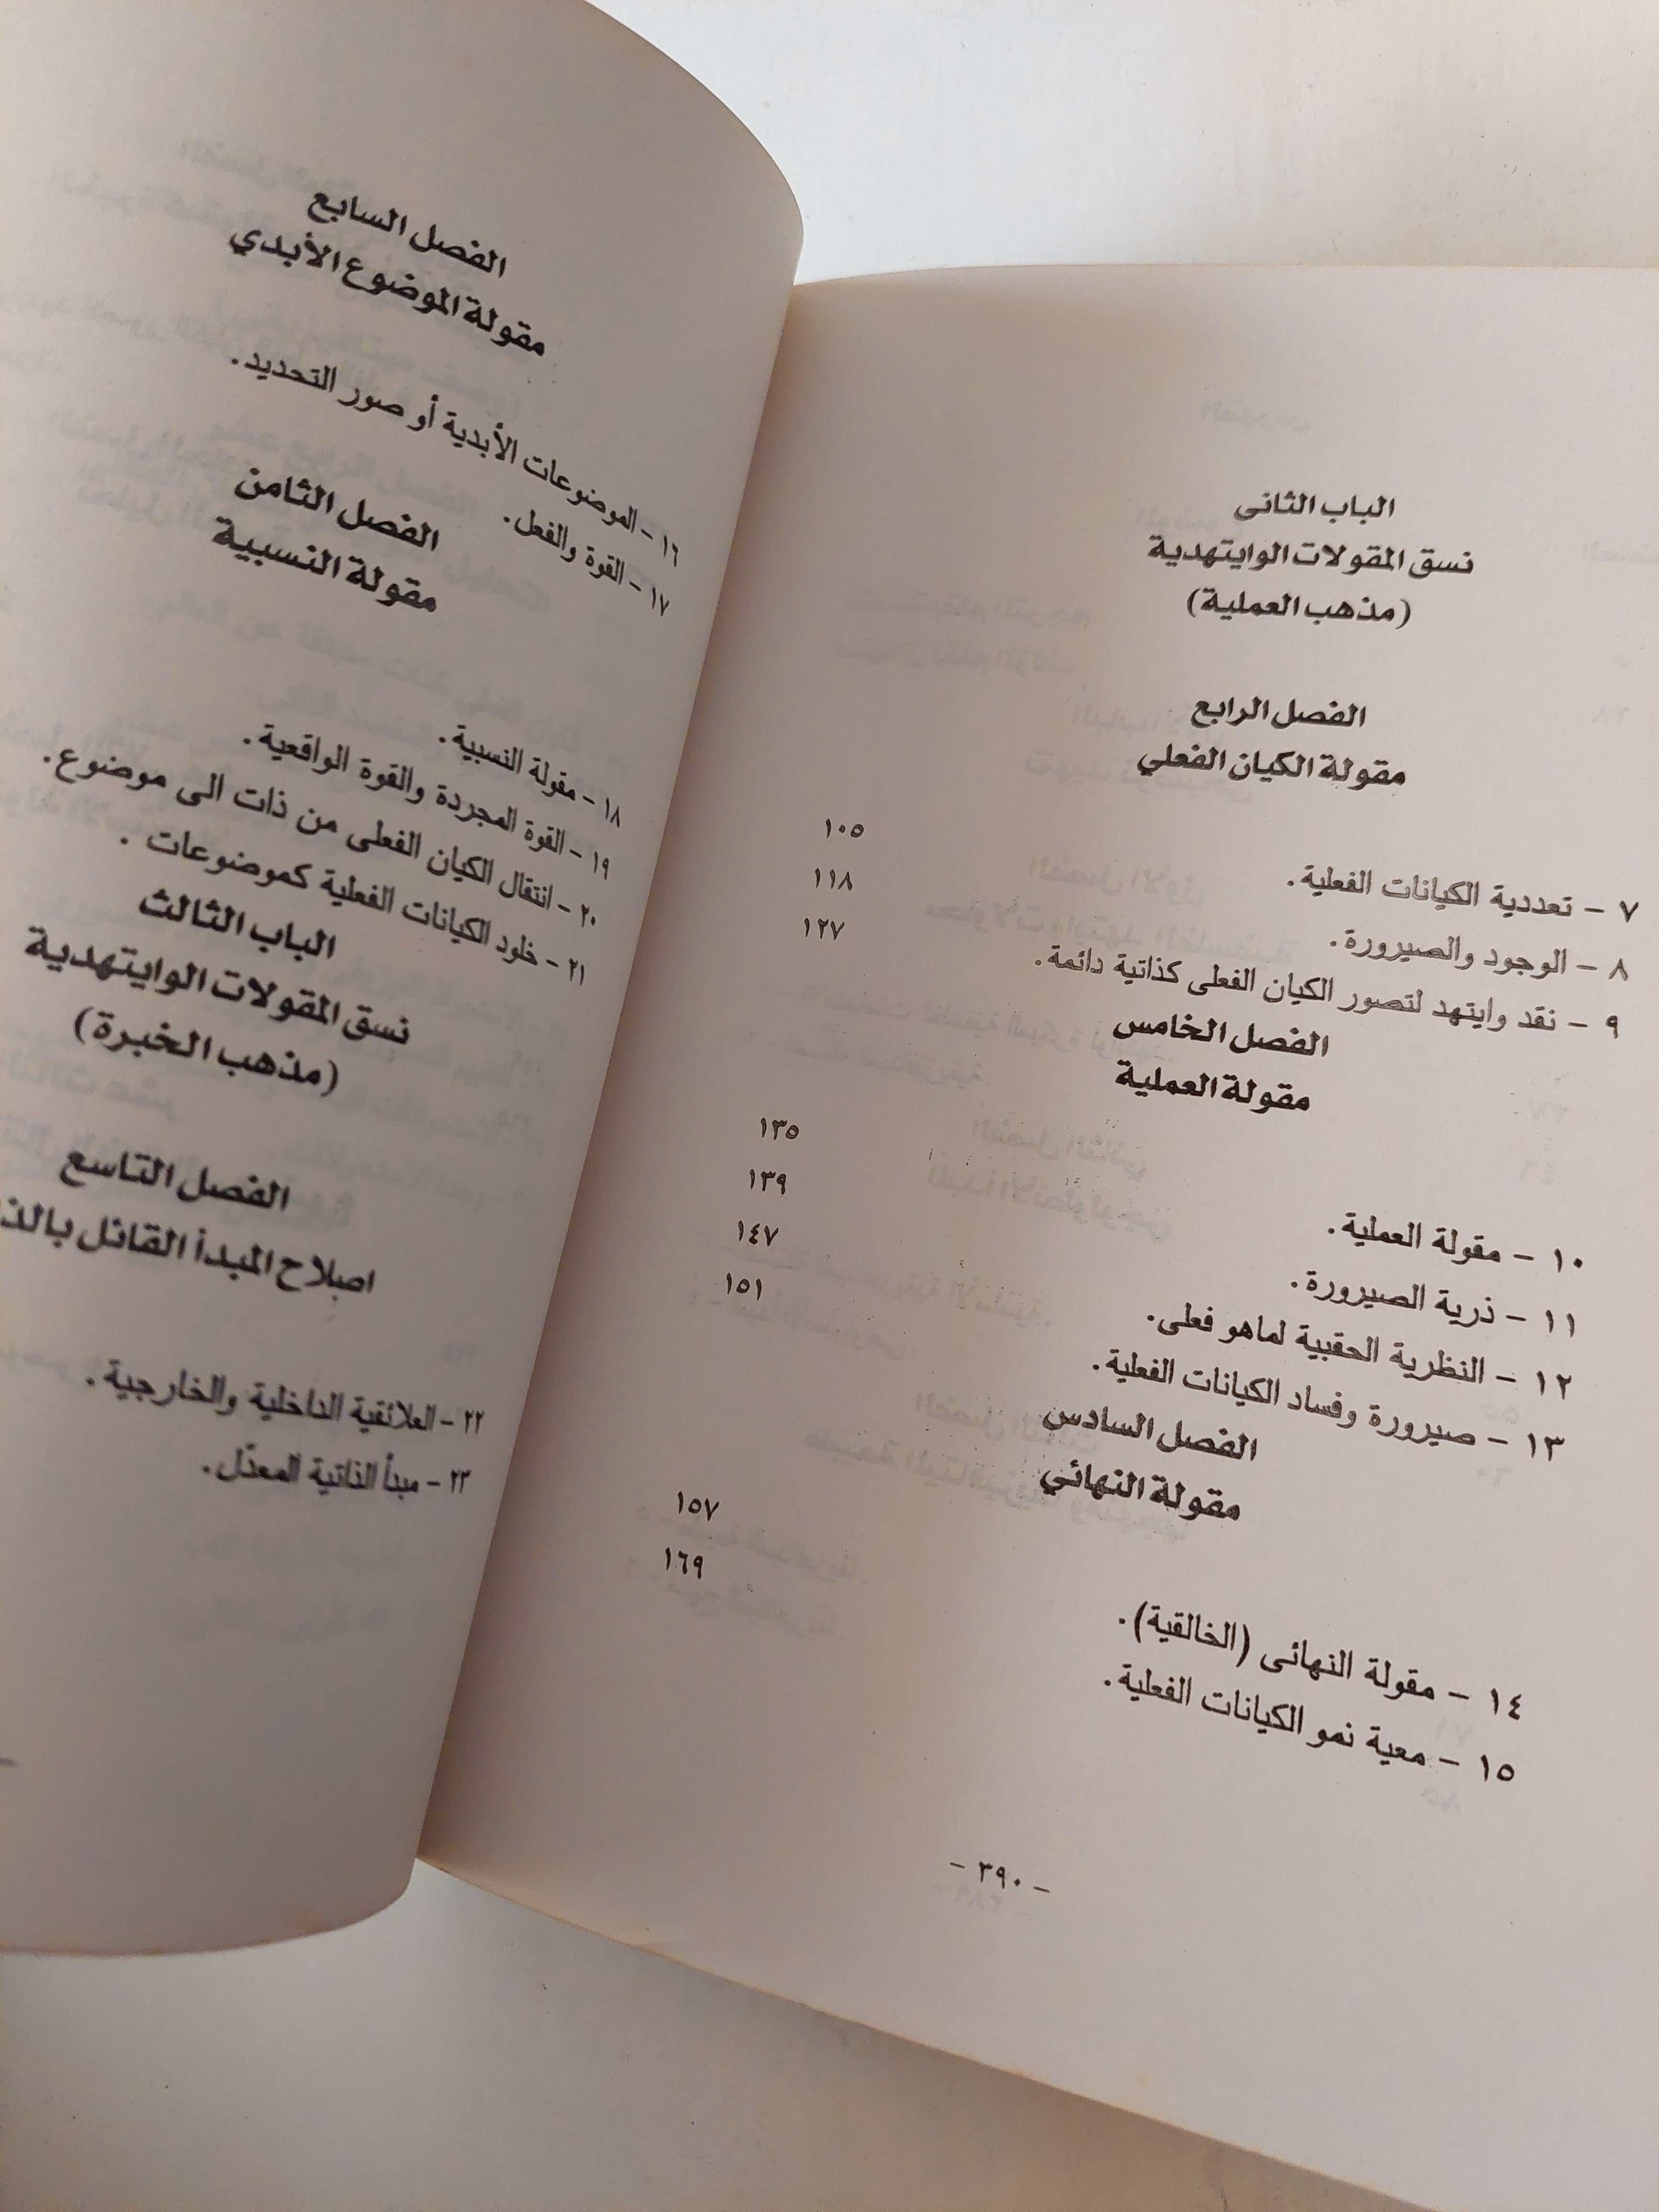 الباب الثانى
نسق المقولات الوايتهدية
(مذهب العملية)
الفصل الرابع
مقولة الكيان الفعلي
٧ – تعددية الكيانات الفعلية. ١٠٥
٨ – الوجود والصيرورة. ١١٨
٩ – نقد وايتهد لتصور الكيان الفعلى كذاتية دائمة. ١٢٧
الفصل الخامس
مقولة العملية
١٠ – مقولة العملية. ١٣٥
١١ – ذرية الصيرورة. ١٣٩
١٢ – النظرية الحقبية لماهو فعلى. ١٤٧
١٣ – صيرورة وفساد الكيانات الفعلية. ١٥١
الفصل السادس
مقولة النهائي
١٤ – مقولة النهائى (الخالقية). ١٥٧
١٥ – معية نمو الكيانات الفعلية. ١٦٩
– ٣٩٠ –
الفصل السابع
مقولة الموضوع الأبدي
١٦ – الموضوعات الأبدية أو صور التحديد.
١٧ – القوة والفعل.
الفصل الثامن
مقولة النسبية
١٨ – مقولة النسبية.
١٩ – القوة المجردة والقوة الواقعية.
٢٠ – انتقال الكيان الفعلى من ذات الى موضوع.
٢١ – خلود الكيانات الفعلية كموضوعات .
الباب الثالث
نسق المقولات الوايتهدية
(مذهب الخبرة)
الفصل التاسع
اصلاح المبدأ القائل
٢٢ – العلائقية الداخلية والخارجية.
٢٣ – مبدأ الذاتية المعدّل.